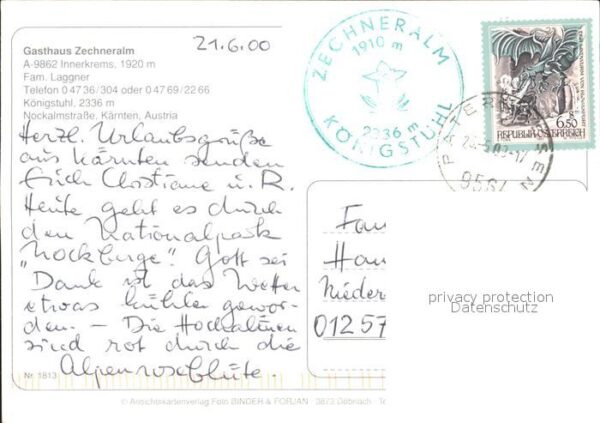 Gasthaus Zechneralm
A-9862 Innerkrems, 1920 m
Fam. Laggner
Telefon 0 47 36/304 oder 0 47 69/22 66
Königstuhl, 2336 m
Nockalmstraße, Kärnten, Austria
21.6.00
Herzl. Urlaubsgrüße
aus Kärnten senden
Euch Christiane u. R.
Heute geht es durch
den Nationalpark
"Nockberge". Gott sei
Dank ist das Wetter
etwas kühler gewor-
den. – Die Hochalmen
sind rot durch die
Alpenroseblüte.
Nr. 1813
© Ansichtskartenverlag Foto BINDER & FORJAN
ZECHNERALM
1910 m
2336 m
KÖNIGSTUHL
6.50
REPUBLIK ÖSTERREICH
PATERNION
Fam
Han
Nieder
01257
privacy protection
Datenschutz